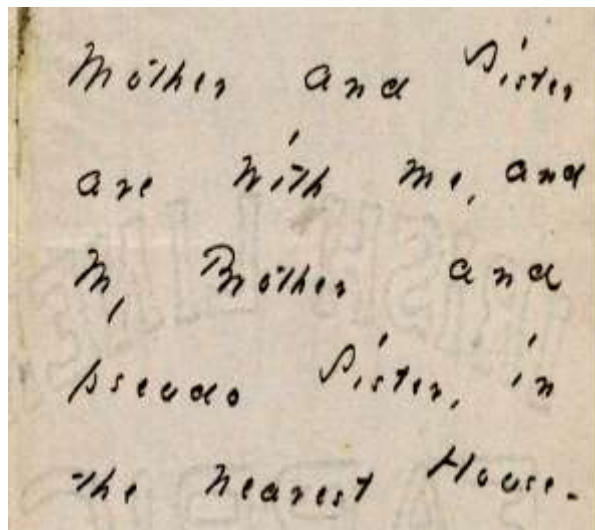 Mother and Sister
are with me, and
my Brother and
pseudo Sister, in
the nearest House.